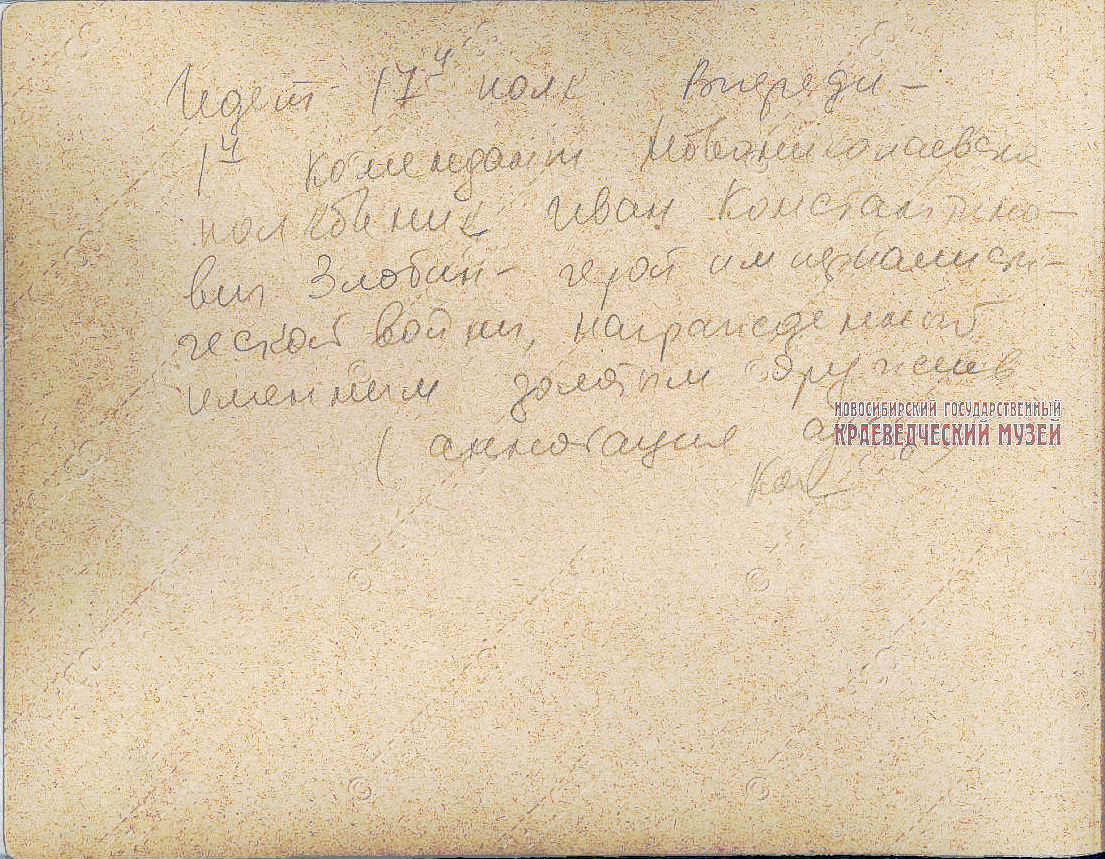 Идет 17й полк Впереди –
1й комендант Новониколаевска
полковник Иван Константино-
вич Злобин – герой империалисти-
ческой войны, награжденный
именным золотым оружием
НОВОСИБИРСКИЙ ГОСУДАРСТВЕННЫЙ
КРАЕВЕДЧЕСКИЙ МУЗЕЙ
(аннотация